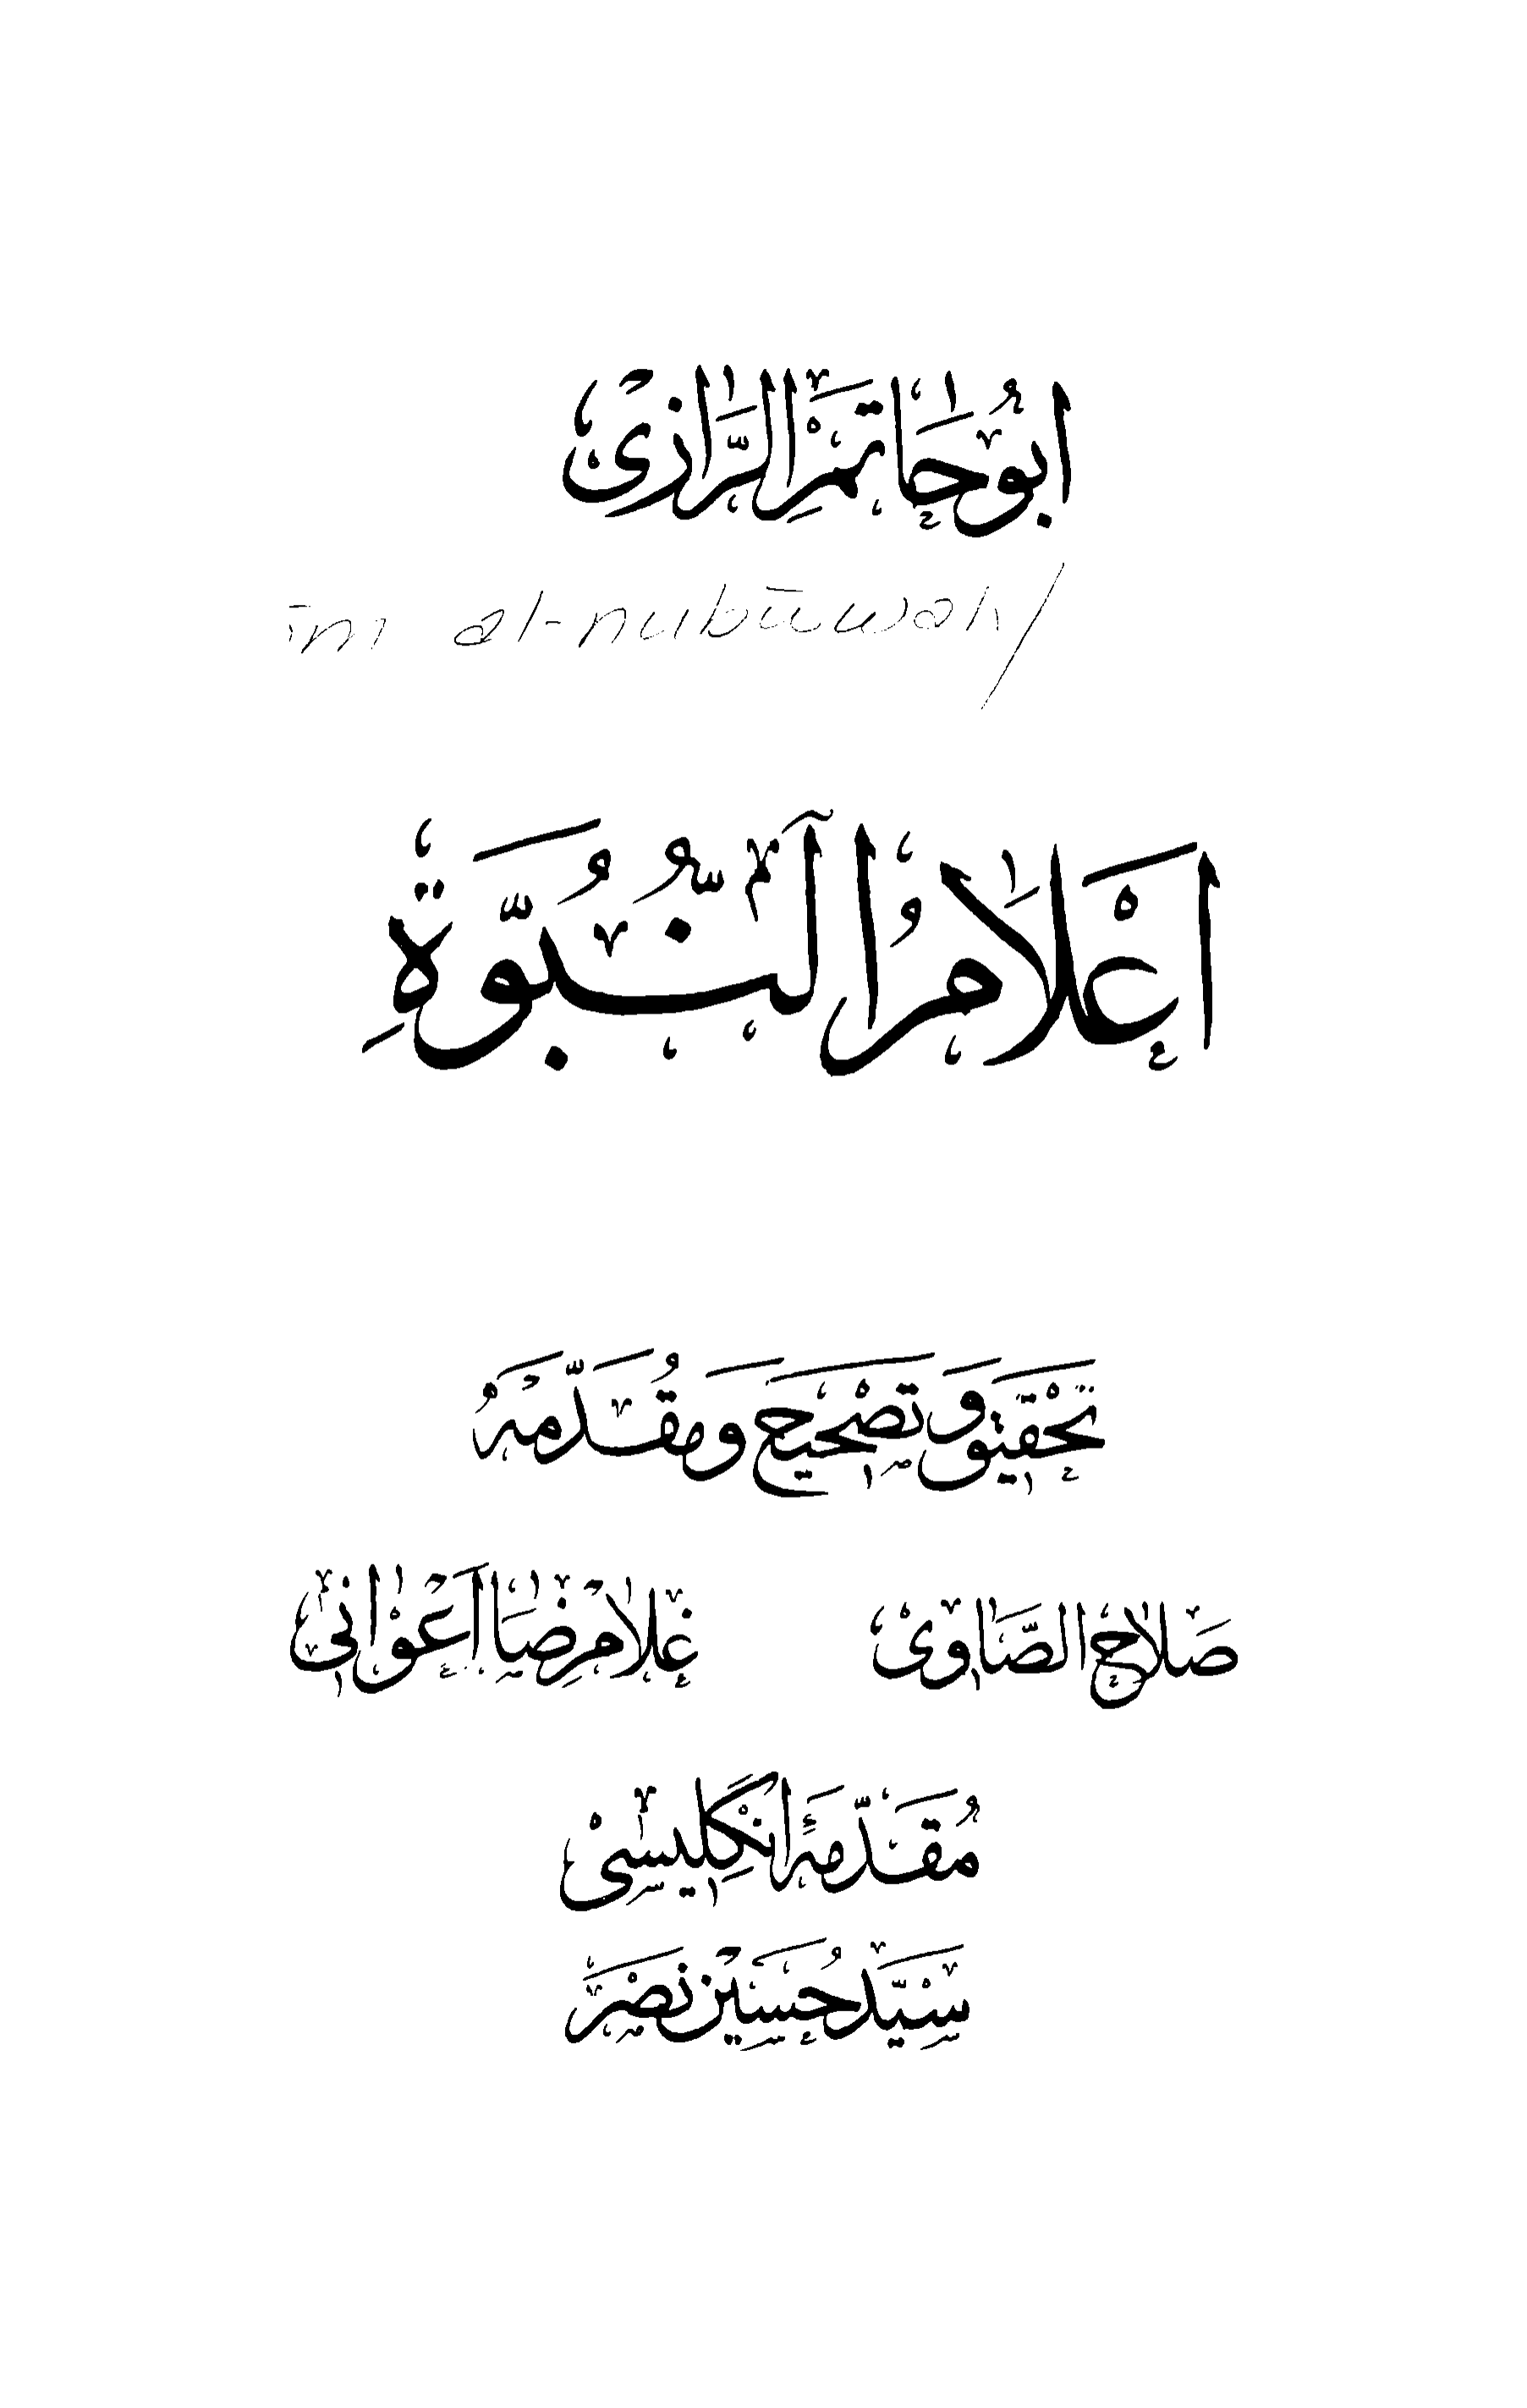 ابُو حَاتَمْ الرَّازی
īm al-nubūwah/
اَعْلَامُ اَلنُّبُوَّةِ
تَحْقیق وَ تَصْحیح وَ مُقَدَّمَه
صَلاح الصَّاوی غلامرِضَا اَعْوانی
مُقَدّمَهٔ اَنْگِلیسی
سَیَّد حُسَین نَصْر